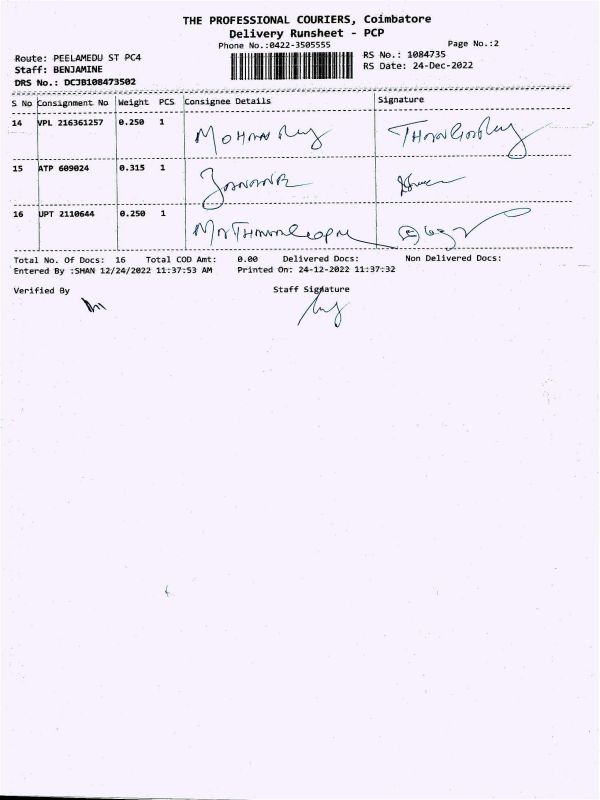 THE PROFESSIONAL COURIERS, Coimbatore
Delivery Runsheet - PCP
Phone No.:0422-3505555
Page No.:2
Route: PEELAMEDU ST PC4
RS No.: 1084735
Staff: BENJAMINE
RS Date: 24-Dec-2022
DRS No.: DCJB108473502
S No Consignment No Weight PCS Consignee Details Signature
14 VPL 216361257 0.250 1 MOHAN
15 ATP 609024 0.315 1
16 UPT 2110644 0.250 1
Total No. Of Docs: 16 Total COD Amt: 0.00 Delivered Docs: Non Delivered Docs:
Entered By :SHAN 12/24/2022 11:37:53 AM Printed On: 24-12-2022 11:37:32
Verified By Staff Signature